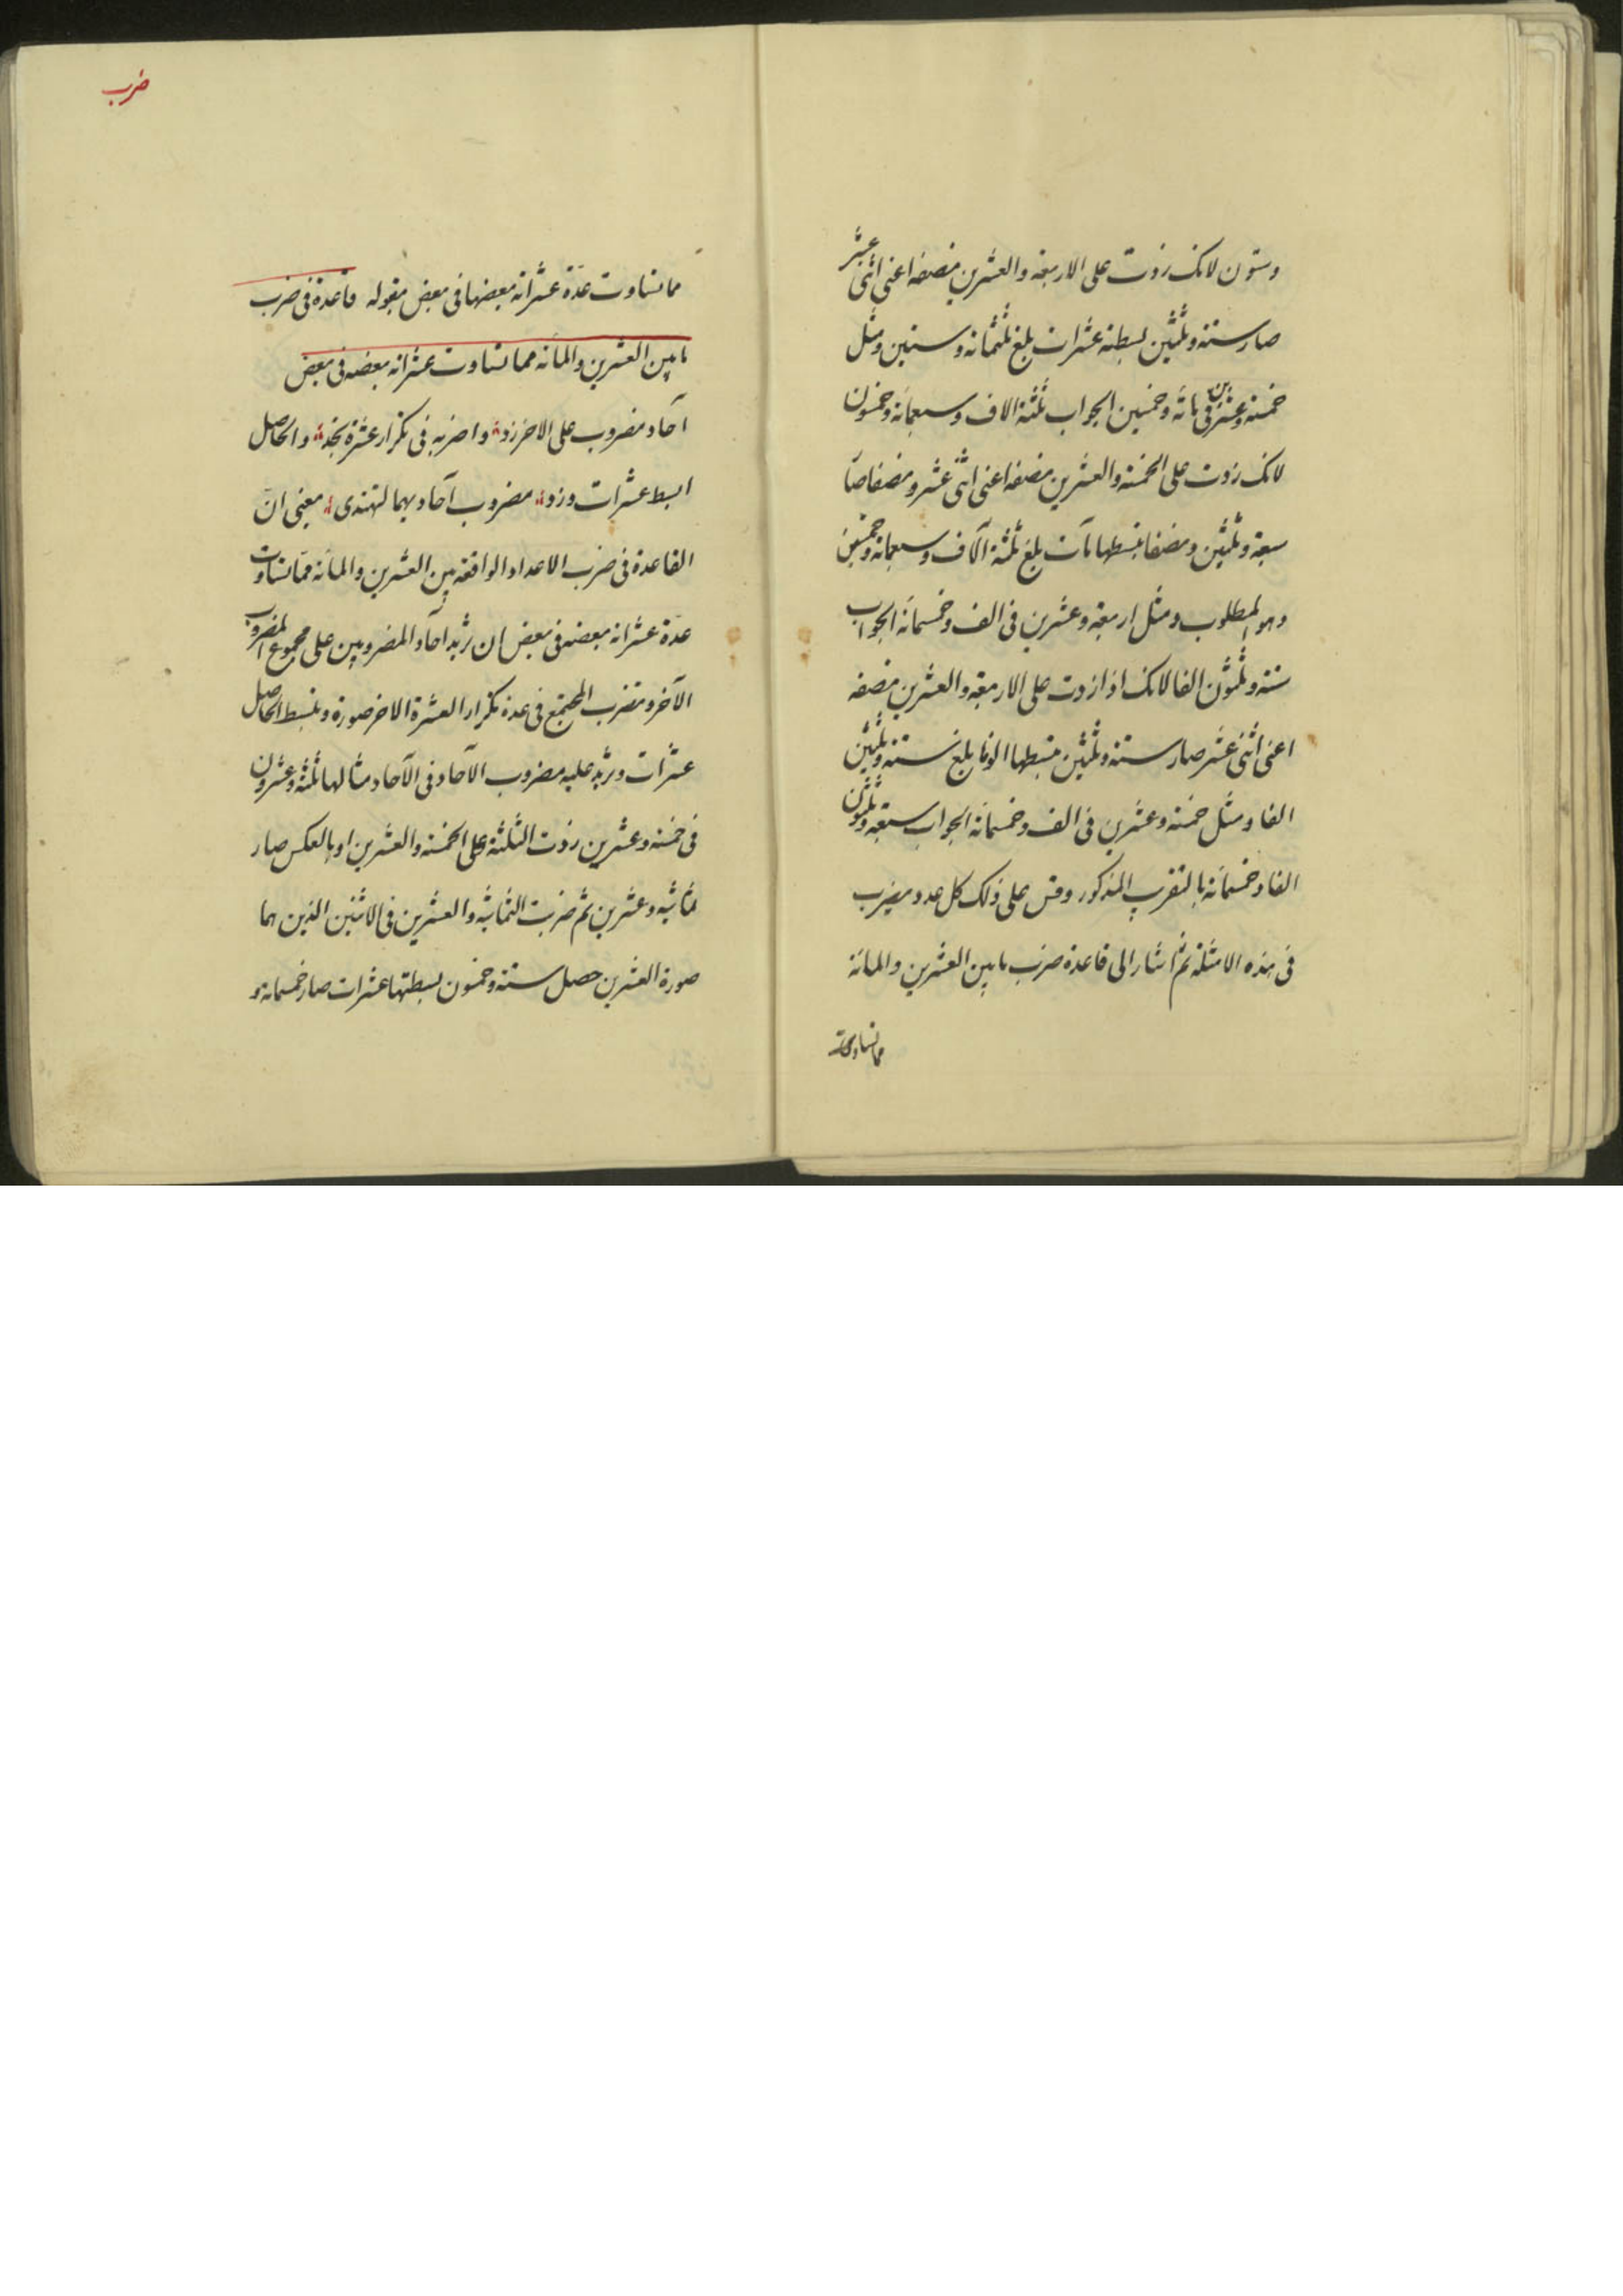 وستون لانك زدت على الاربعة والعشرين نصفه اعنى اثنى عشر
صار ستة وثلثين بسطته عشرات بلغ ثلثمائة وستين ومثل
خمسة وعشرين فى مائة وخمسين الجواب ثلثة الاف وسبعمائة وخمسون
لانك زدت على الخمسة والعشرين نصفه اعنى اثنى عشر ونصفا صار
سبعة وثلثين ونصفا تبسطها مآت بلغ ثلثة آلاف وسبعمائة وخمسين
وهو المطلوب ومثل اربعة وعشرين فى الف وخمسمائة الجواب
ستة وثلثون الفا لانك اذا زدت على الاربعة والعشرين نصفه
اعنى اثنى عشر صار ستة وثلثين تبسطها الوفا بلغ ستة وثلثين
الفا ومثل خمسة وعشرين فى الف وخمسمائة الجواب سبعة وثلثون
الفا وخمسمائة بالتقريب المذكور وقس على ذلك كل عدد يضرب
فى هذه الامثلة ثم اشار الى قاعدة ضرب ما بين العشرين والمائة
مما تساوت
ضرب
مما تساوت عدة عشراته بعضها فى بعض بقوله قاعدة فى ضرب
ما بين العشرين والمائة مما تساوت عشراته بعضه فى بعض
آحاد مضروب على الاخر زد واضربه فى تكرار عشرة تجد والحاصل
ابسط عشرات وزد مضروب آحاد بهما لتهتدى يعنى ان
القاعدة فى ضرب الاعداد الواقعة بين العشرين والمائة مما تساوت
عدة عشراته بعضه فى بعض ان تزيد آحاد المضروبين على مجموع المضروب
الآخر وتضرب المجتمع فى عدة تكرار العشرة الاخر صورة وتبسط الحاصل
عشرات وتزيد عليه مضروب الآحاد فى الآحاد مثالها ثلثة وعشرون
فى خمسة وعشرين زدت الثلثة على الخمسة والعشرين او بالعكس صار
ثمانية وعشرين ثم ضربت الثمانية والعشرين فى الاثنين الذين هما
صورة العشرين حصل ستة وخمسون بسطتها عشرات صار خمسمائة و